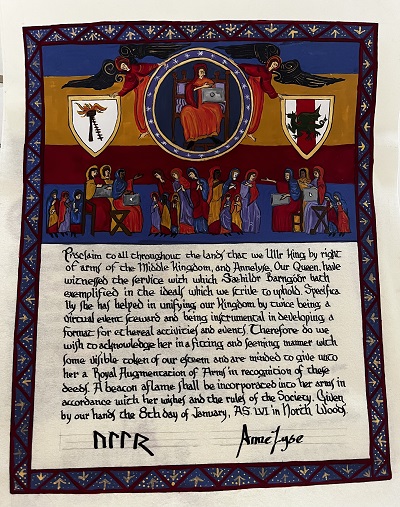 Proclaim to all throughout the lands that we Ullr King by right
of arms of the Middle Kingdom, and Annelyse, Our Queen, have
witnessed the service with which Barngóðr hath
exemplified in the ideals which we strive to uphold. Specifica
lly she has helped in unifying our Kingdom by twice being a
virtual event steward and being instrumental in developing a
format for ethereal activities and events. Therefore do we
wish to acknowledge her in a fitting and seeming manner with
some visible token of our esteem and are minded to give unto
her a Royal Augmentation of Arms in recognition of these
deeds. A beacon aflame shall be incorporated into her arms in
accordance with her wishes and the rules of the Society. Given
by our hands the 8th day of January, AS LVI in North Woods.
ᚢᛚᛚᚱ Annelyse